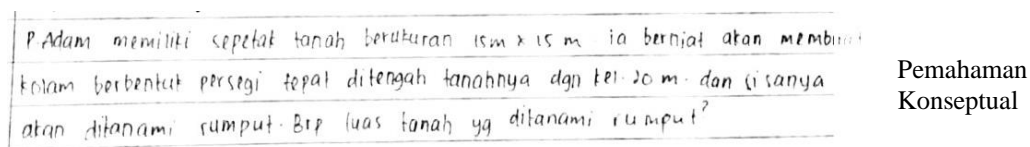 P. Adam memiliki sepetak tanah berukuran 15m x 15 m ia berniat akan
kolam berbentuk persegi tepat ditengah tanahnya dgn kel. 20 m. dan sisanya
akan ditanami rumput. Brp luas tanah yg ditanami rumput?
Pemahaman
Konseptual